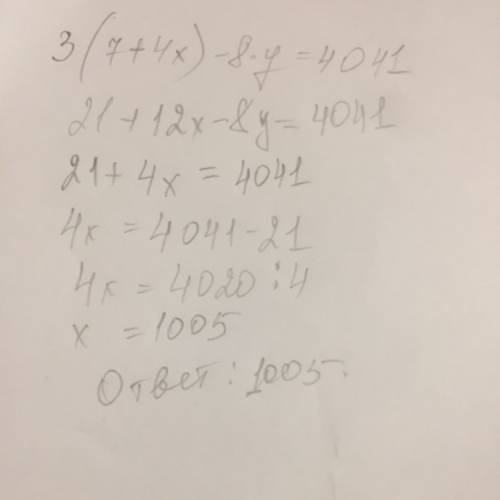 3(7+4x)-8·y=4041
21+12x-8y=4041
21+4x=4041
4x=4041-21
4x=4020:4
x=1005
Ответ: 1005.